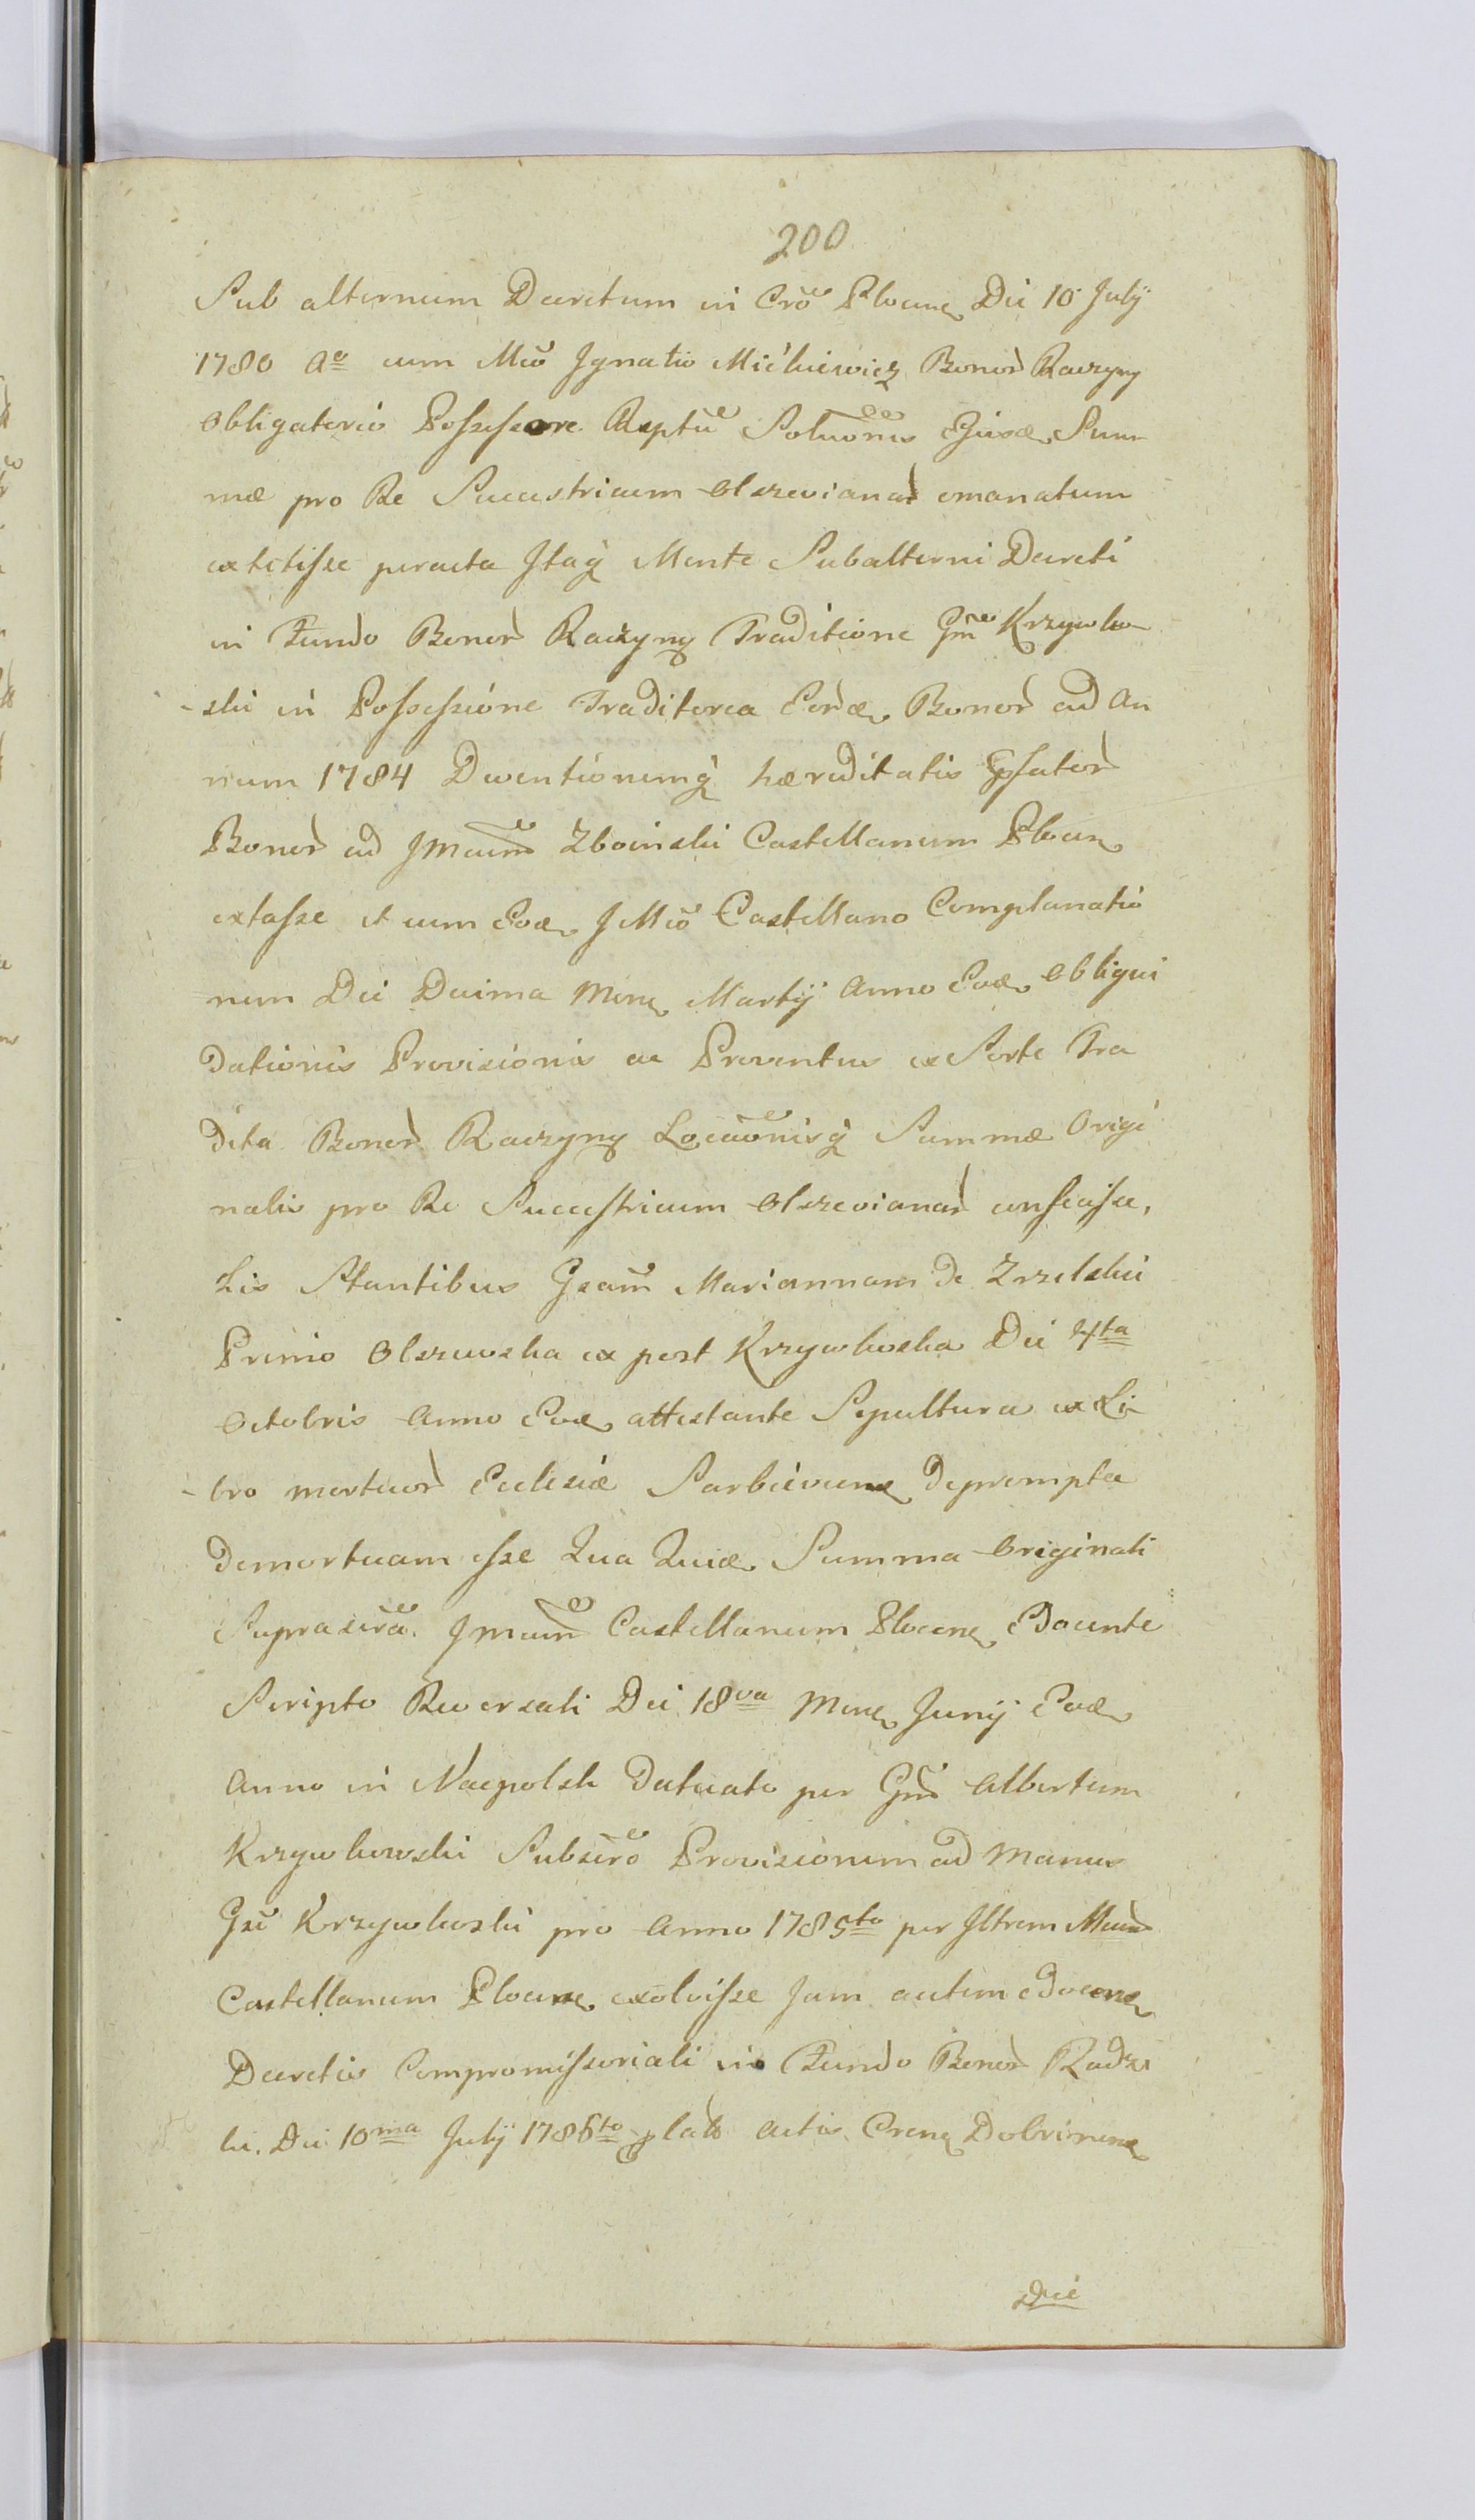 200
Sub alternum Decretum in Crō Plocen Die 10 July
1780 Ao cum Mco Ignatio Mićkiewicz Bonor Raczyny
obligatorio Possessore Rsptū Soluōnis Ejusd Sum
mæ pro Re Succestricum Olszevianar emanatum
extitisse peracta Itaq Mente Subalterni Decreti
in Fundo Bonor Raczyny Traditione Gm Krzywko
-ski in Possessione Traditorea Eord Bonor ad An
num 1784 Deventionemq hæreditatis Epsator
Bonor ad JMcum Zboinski Castellanum Plocen
extasse et cum Eod JMco Castellano Complanatio
nem Die Decima Mens Martij Anno Eod obliqui
dationis Provisionis ac Proventus ex Sorte Tra
dita Bonor Raczyny Locaōnisq Summæ Origi
nalis pro Re Succestricum Olszevianar confecisse,
His Stantibus Gsam Mariannam de Zrzelskie
Primo Olszewska ex post Krzywkoska Die 4ta
Octobris Anno Eod attestante Sepultura ex Li
-bro mortuor Ecclesiæ Sarbievien deprompta
demortuam esse Qua Quid Summa Originali
Suprascrā JMcum Castellanum Plocen Edocente
Scripto Reversali Die 18va Mens Junij Eod
Anno in Naepolsk datuato per Gm Albertum
Krzywkowski Subscrō Provisionem ad Manus
Gsi Krzywkoski pro Anno 1785to per Iltrem Mcum
Castellanum Plocen exolvisse Jam autem Edocen
Decretis Compromissoriali in Fundo Bonor Radzi
ki. Die 10ma July 1786to lato Actis Cren Dobrinen
Die